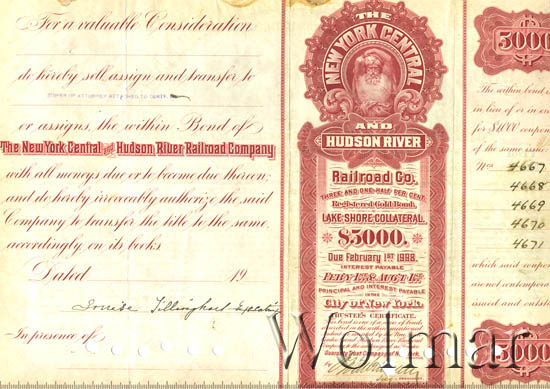 For a valuable Consideration
do hereby sell assign and transfer to
or assigns, the within Bond of
The New York Central and Hudson River Railroad Company
with all moneys due or to become due thereon;
and do hereby irrevocably authorize the said
Company to transfer the title to the same
accordingly, on its books.
Dated 19
Louise Tillinghast
In presence of
THE
NEW YORK CENTRAL
AND
HUDSON RIVER
Railroad Co.
THREE AND ONE-HALF PER CENT.
Registered Gold Bond.
LAKE SHORE COLLATERAL.
$5000.
Due February 1st 1998.
INTEREST PAYABLE
FEBY 1ST & AUGT 1ST
PRINCIPAL AND INTEREST PAYABLE
IN THE
City of New York.
TRUSTEE'S CERTIFICATE.
Guaranty Trust Company of New York,
5000
The within bond is
in lieu of or in
for $5,000 coupon
of the same issue
Nos 4667
4668
4669
4670
4671
which said coupon
are not contempora
issued and outsta
5000
Wolmar